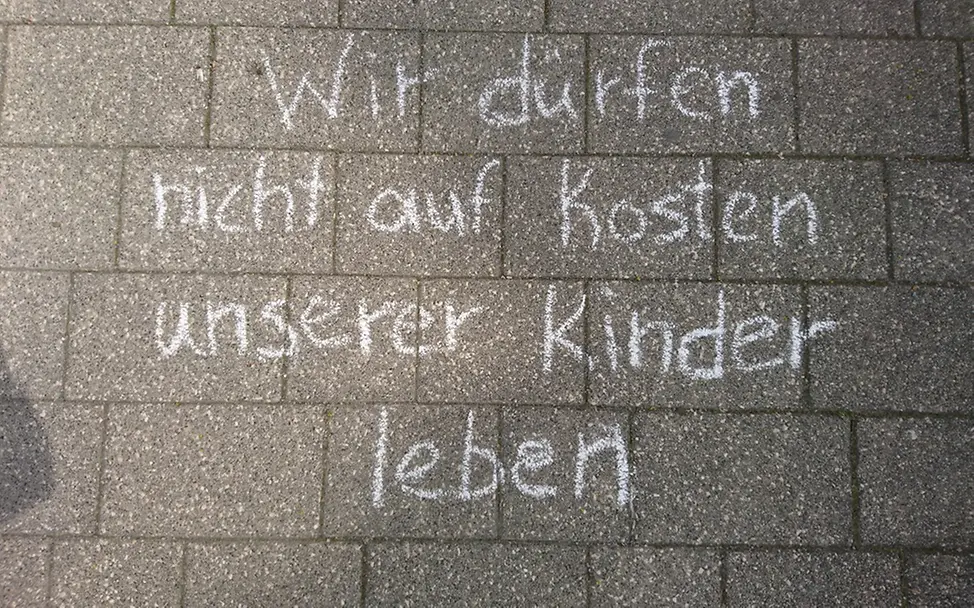 Wir dürfen
nicht auf Kosten
unserer Kinder
leben